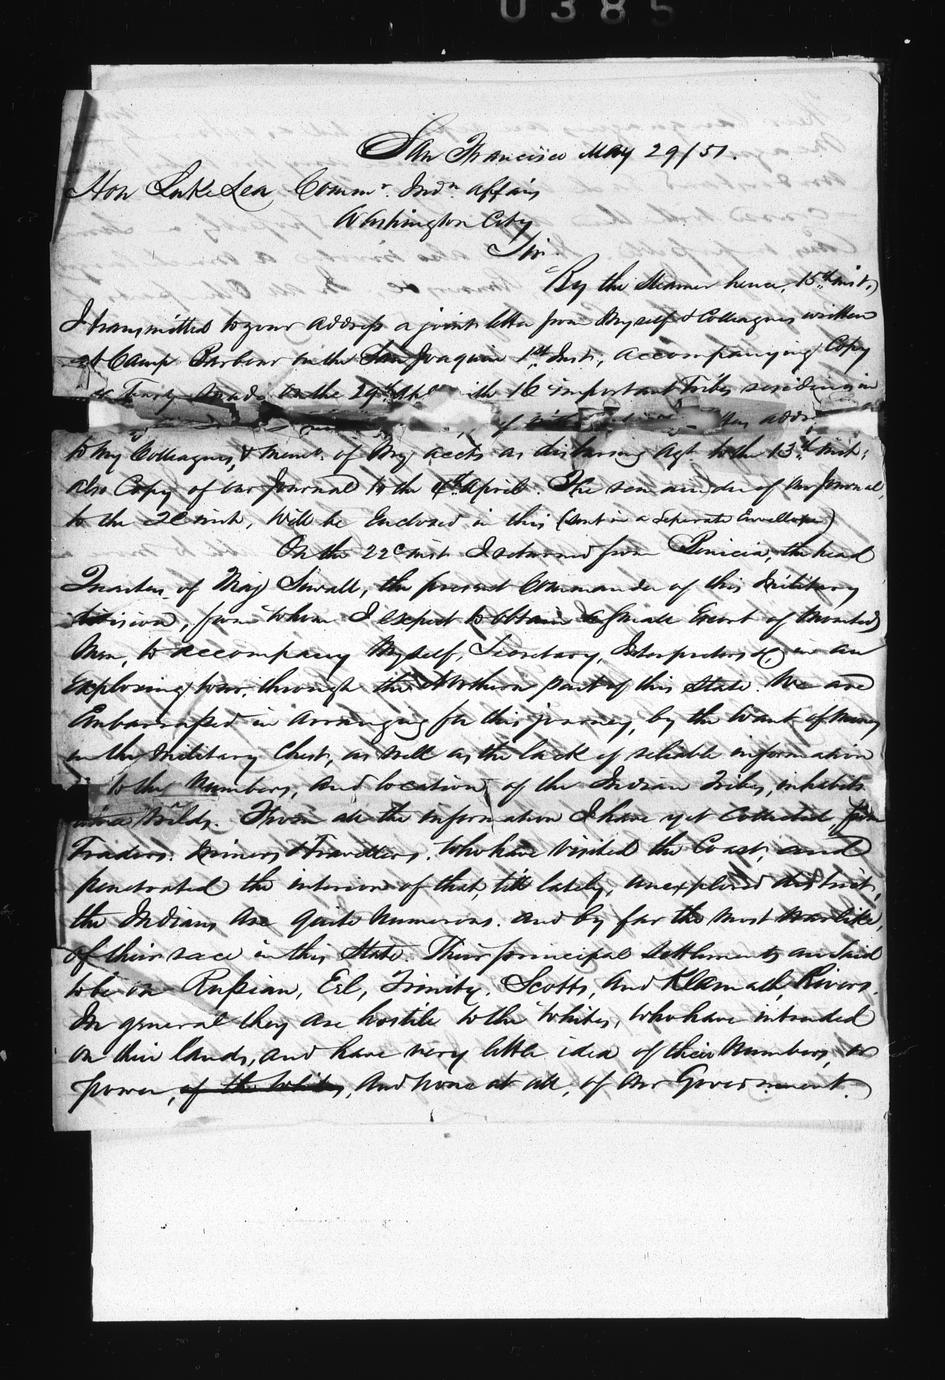 0385
San Francisco May 29/51.
Hon Luke Lea Commr. Indn. affairs
Washington City
Sir
By the Steamer hence, 15th inst,
I transmitted to your address a joint letter from Myself & Colleagues written
at Camp Barbour on the San Joaquin 1st Inst, accompanying Copy
of Treaty made on the 29th Ulto with 16 important Tribes residing in
to my Colleagues, & memt. of My accts as disbursing Agt to the 13th Inst;
also Copy of our Journal to the 4th April. The remainder of our Journal,
to the 20 inst, will be Enclosed in this (sent in a Seperate Envellope)
On the 22d inst I returned from Benicia, the head
Quarters of Maj Sewall, the present Commander of this Military
division, from whom I expect to obtain an Escort of Mounted
Men, to accompany Myself, Secretary, Interpreters &c on an
Exploring tour, through the Northern part of this State. We are
Embarrassed in arranging for this journey, by the want of Money
in the Military Chest, as well as the lack of reliable information
to the Numbers, and location of the Indian Tribes, inhabit
Wilds. From all the information I have yet collected from
Traders. Miners & Travellers. Who have visited the Coast, and
penetrated the interior of that, till lately, unexplored district,
the Indians are quite Numerous. and by far the most warlike,
of their race in this State. Their principal settlements are said
to be on Russian, Eel, Trinity, Scotts, and Klamath, Rivers.
In general they are hostile to the Whites, who have intruded
on their lands, and have very little idea of their Numbers, or
power, of the whites, And none at all, of our Government.